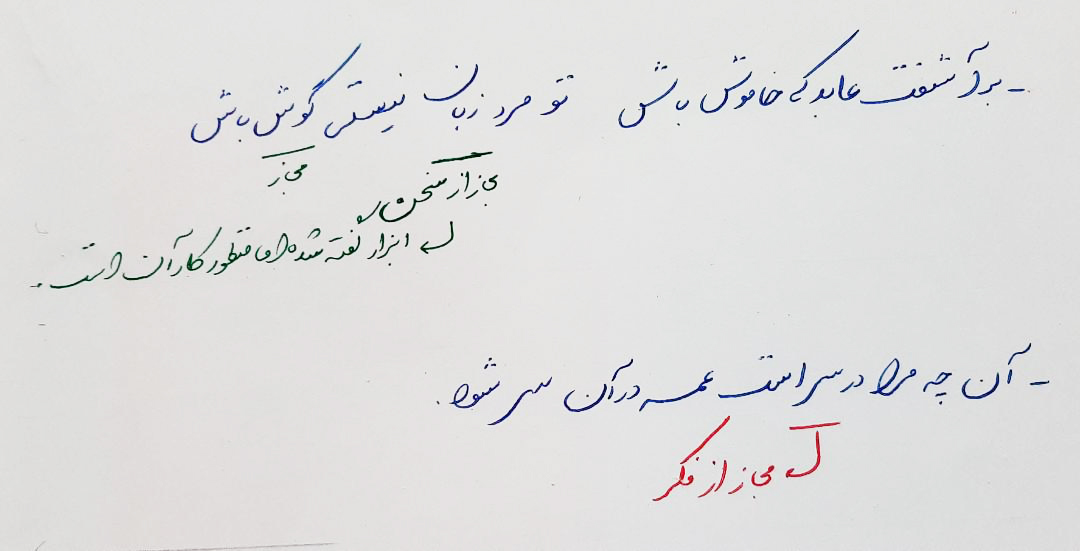 - برآشفت عابد که خاموش باش تو مرد زبان نیستی گوش باش
مجاز
مجاز از سخن
ابزار گفته شده اما منظور کار آن است.
- آن چه مرا در سر است عمر در آن سر شود.
مجاز از فکر